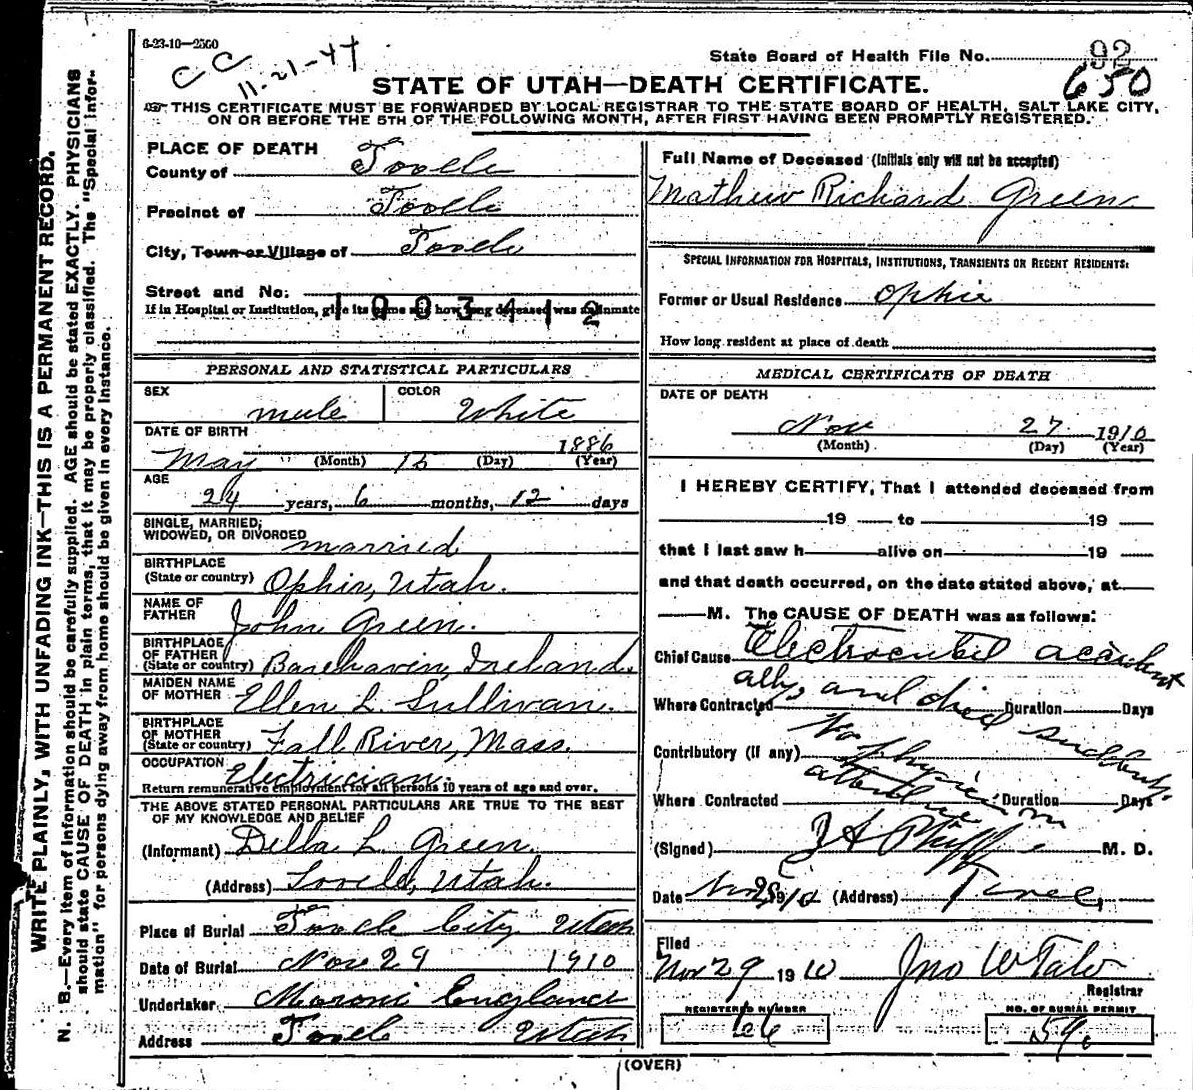 6-23-10—2500
C C
11-21-44
State Board of Health File No. 92
650
STATE OF UTAH—DEATH CERTIFICATE.
THIS CERTIFICATE MUST BE FORWARDED BY LOCAL REGISTRAR TO THE STATE BOARD OF HEALTH, SALT LAKE CITY,
ON OR BEFORE THE 5TH OF THE FOLLOWING MONTH, AFTER FIRST HAVING BEEN PROMPTLY REGISTERED.
WRITE PLAINLY, WITH UNFADING INK—THIS IS A PERMANENT RECORD.
N. B.—Every item of information should be carefully supplied. AGE should be stated EXACTLY. PHYSICIANS
should state CAUSE OF DEATH in plain terms, that it may be properly classified. The "Special Infor-
mation" for persons dying away from home should be given in every instance.
PLACE OF DEATH
County of Tooele
Precinct of Tooele
City, Town or Village of Tooele
Street and No.
1003412
If in Hospital or Institution, give its name and how long deceased was an inmate
PERSONAL AND STATISTICAL PARTICULARS
SEX male COLOR White
DATE OF BIRTH
May (Month) 15 (Day) 1886 (Year)
AGE
24 years, 6 months, 12 days
SINGLE, MARRIED,
WIDOWED, OR DIVORCED married
BIRTHPLACE
(State or country) Ophir, Utah.
NAME OF
FATHER John Green.
BIRTHPLACE
OF FATHER
(State or country) Barehaven, Ireland.
MAIDEN NAME
OF MOTHER Ellen L. Sullivan.
BIRTHPLACE
OF MOTHER
(State or country) Fall River, Mass.
OCCUPATION Electrician.
Return remunerative employment for all persons 10 years of age and over.
THE ABOVE STATED PERSONAL PARTICULARS ARE TRUE TO THE BEST
OF MY KNOWLEDGE AND BELIEF
(Informant) Della L. Green.
(Address) Tooele, Utah.
Place of Burial Tooele City Utah
Date of Burial Nov 29 1910
Undertaker Moroni England
Address Tooele Utah
Full Name of Deceased (Initials only will not be accepted)
Mathew Richard Green
SPECIAL INFORMATION FOR HOSPITALS, INSTITUTIONS, TRANSIENTS OR RECENT RESIDENTS:
Former or Usual Residence Ophir
How long resident at place of death
MEDICAL CERTIFICATE OF DEATH
DATE OF DEATH
Nov 27 1910
(Month) (Day) (Year)
I HEREBY CERTIFY, That I attended deceased from
19 to 19
that I last saw h alive on 19
and that death occurred, on the date stated above, at
M. The CAUSE OF DEATH was as follows:
Chief Cause Electrocuted accident
ally, and died suddenly.
Where Contracted Duration Days
No physician
Contributory (if any)
attendance
Where Contracted Duration Days
(Signed) M. D.
Date Nov 28 1910 (Address) Tooele
Filed
Nov 29 1910 Jno W Tate
Registrar
REGISTERED NUMBER
66
NO. OF BURIAL PERMIT
(OVER)